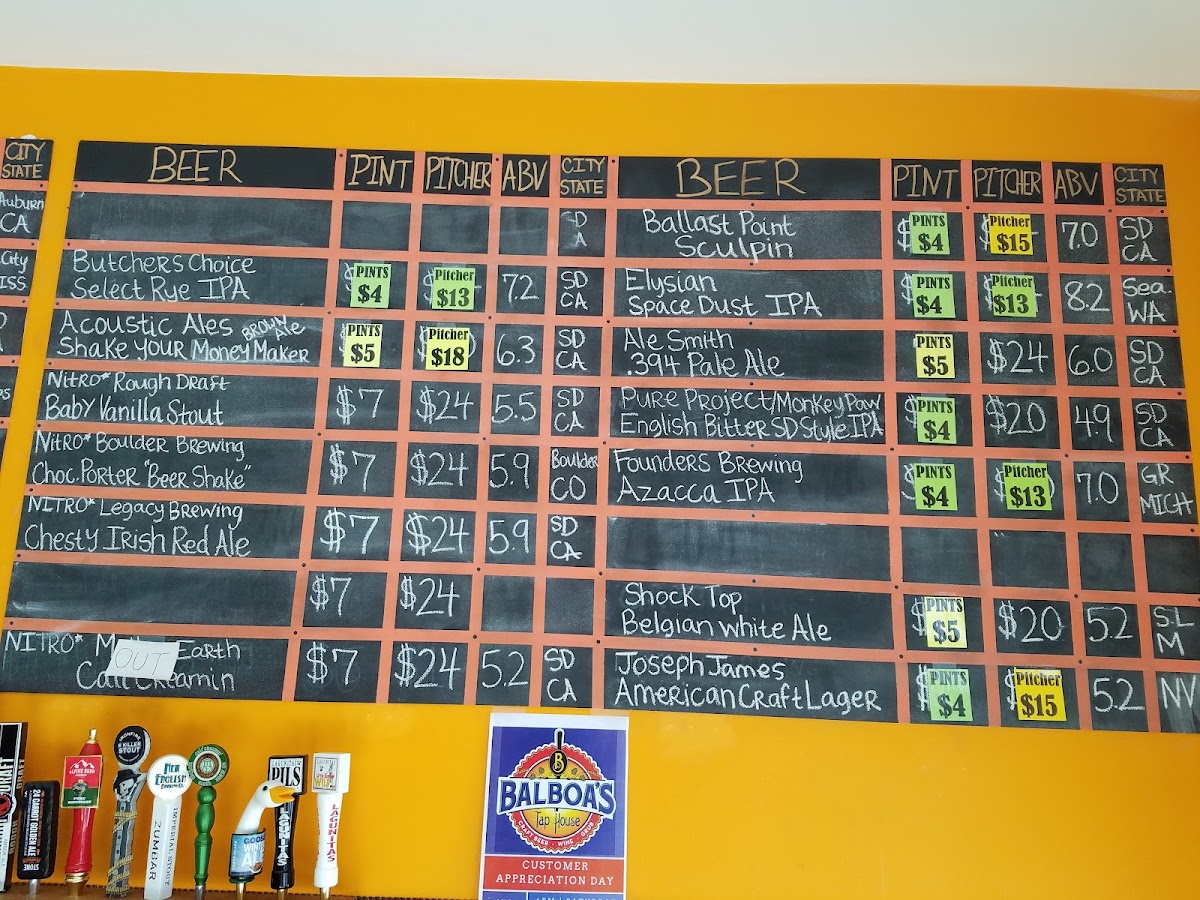 CITY
STATE
Auburn
CA
City
ISS
BEER PINT PITCHER ABV CITY
STATE
Butchers Choice
Select Rye IPA
PINTS
$4
Pitcher
$13
7.2
SD
CA
Acoustic Ales BROWN Ale
Shake your Money Maker
PINTS
$5
Pitcher
$18
6.3
SD
CA
Nitro* Rough Draft
Baby Vanilla Stout
$7 $24 5.5
SD
CA
Nitro* Boulder Brewing
Choc. Porter "Beer Shake"
$7 $24 5.9
Boulder
CO
NITRO* Legacy Brewing
Chesty Irish Red Ale
$7 $24 5.9
SD
CA
$7 $24
NITRO* Earth
OUT
$7 $24 5.2
SD
CA
BEER PINT PITCHER ABV CITY
STATE
Ballast Point
Sculpin
PINTS
$4
Pitcher
$15
7.0
SD
CA
Elysian
Space Dust IPA
PINTS
$4
Pitcher
$13
8.2
Sea.
WA
Ale Smith
.394 Pale Ale
PINTS
$5
$24 6.0
SD
CA
Pure Project/Monkey Paw
English Bitter SD Style IPA
PINTS
$4
$20 4.9
SD
CA
Founders Brewing
Azacca IPA
PINTS
$4
Pitcher
$13
7.0
GR
MICH
Shock Top
Belgian white Ale
PINTS
$5
$20 5.2
S.L
M
Joseph James
American Craft Lager
PINTS
$4
Pitcher
$15
5.2
NV
24 CARROT GOLDEN ALE
STONE
KILLER STOUT
NEW ENGLISH
ZUMBAR
IMPERIAL STOUT
GOOSE
LAGUNITAS
PILS
LAGUNITAS
LAGUNITAS
B
BALBOA'S
Tap House
CRAFT BEER · WINE
CUSTOMER
APPRECIATION DAY